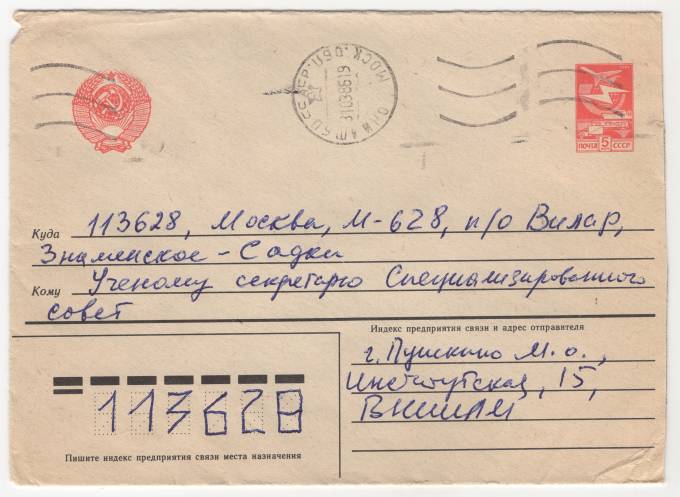 МОСК. ОБЛ.
310386 19
ПОЧТА 5 СССР
Куда 113628, Москва, М-628, п/о Вилар,
Знаменское-Садки
Кому Ученому секретарю Специализированного
совет
Индекс предприятия связи и адрес отправителя
г. Пушкино М.о.,
Институтская, 15,
ВНИИЛМ
113628
Пишите индекс предприятия связи места назначения